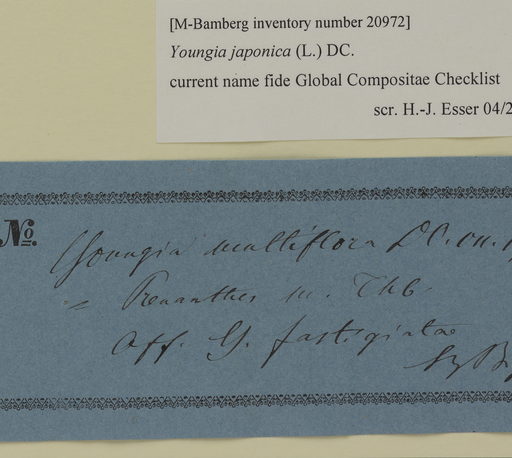 [M-Bamberg inventory number 20972]
Youngia japonica (L.) DC.
current name fide Global Compositae Checklist
scr. H.-J. Esser 04/2
No.
Youngia multiflora DC.
= Prenanthes m. Thb.
Aff. Y. fastigiatae